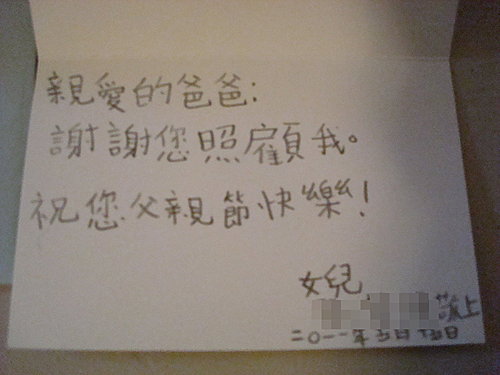 親愛的爸爸:
謝謝您照顧我。
祝您父親節快樂!
女兒
敬上
二〇一一年